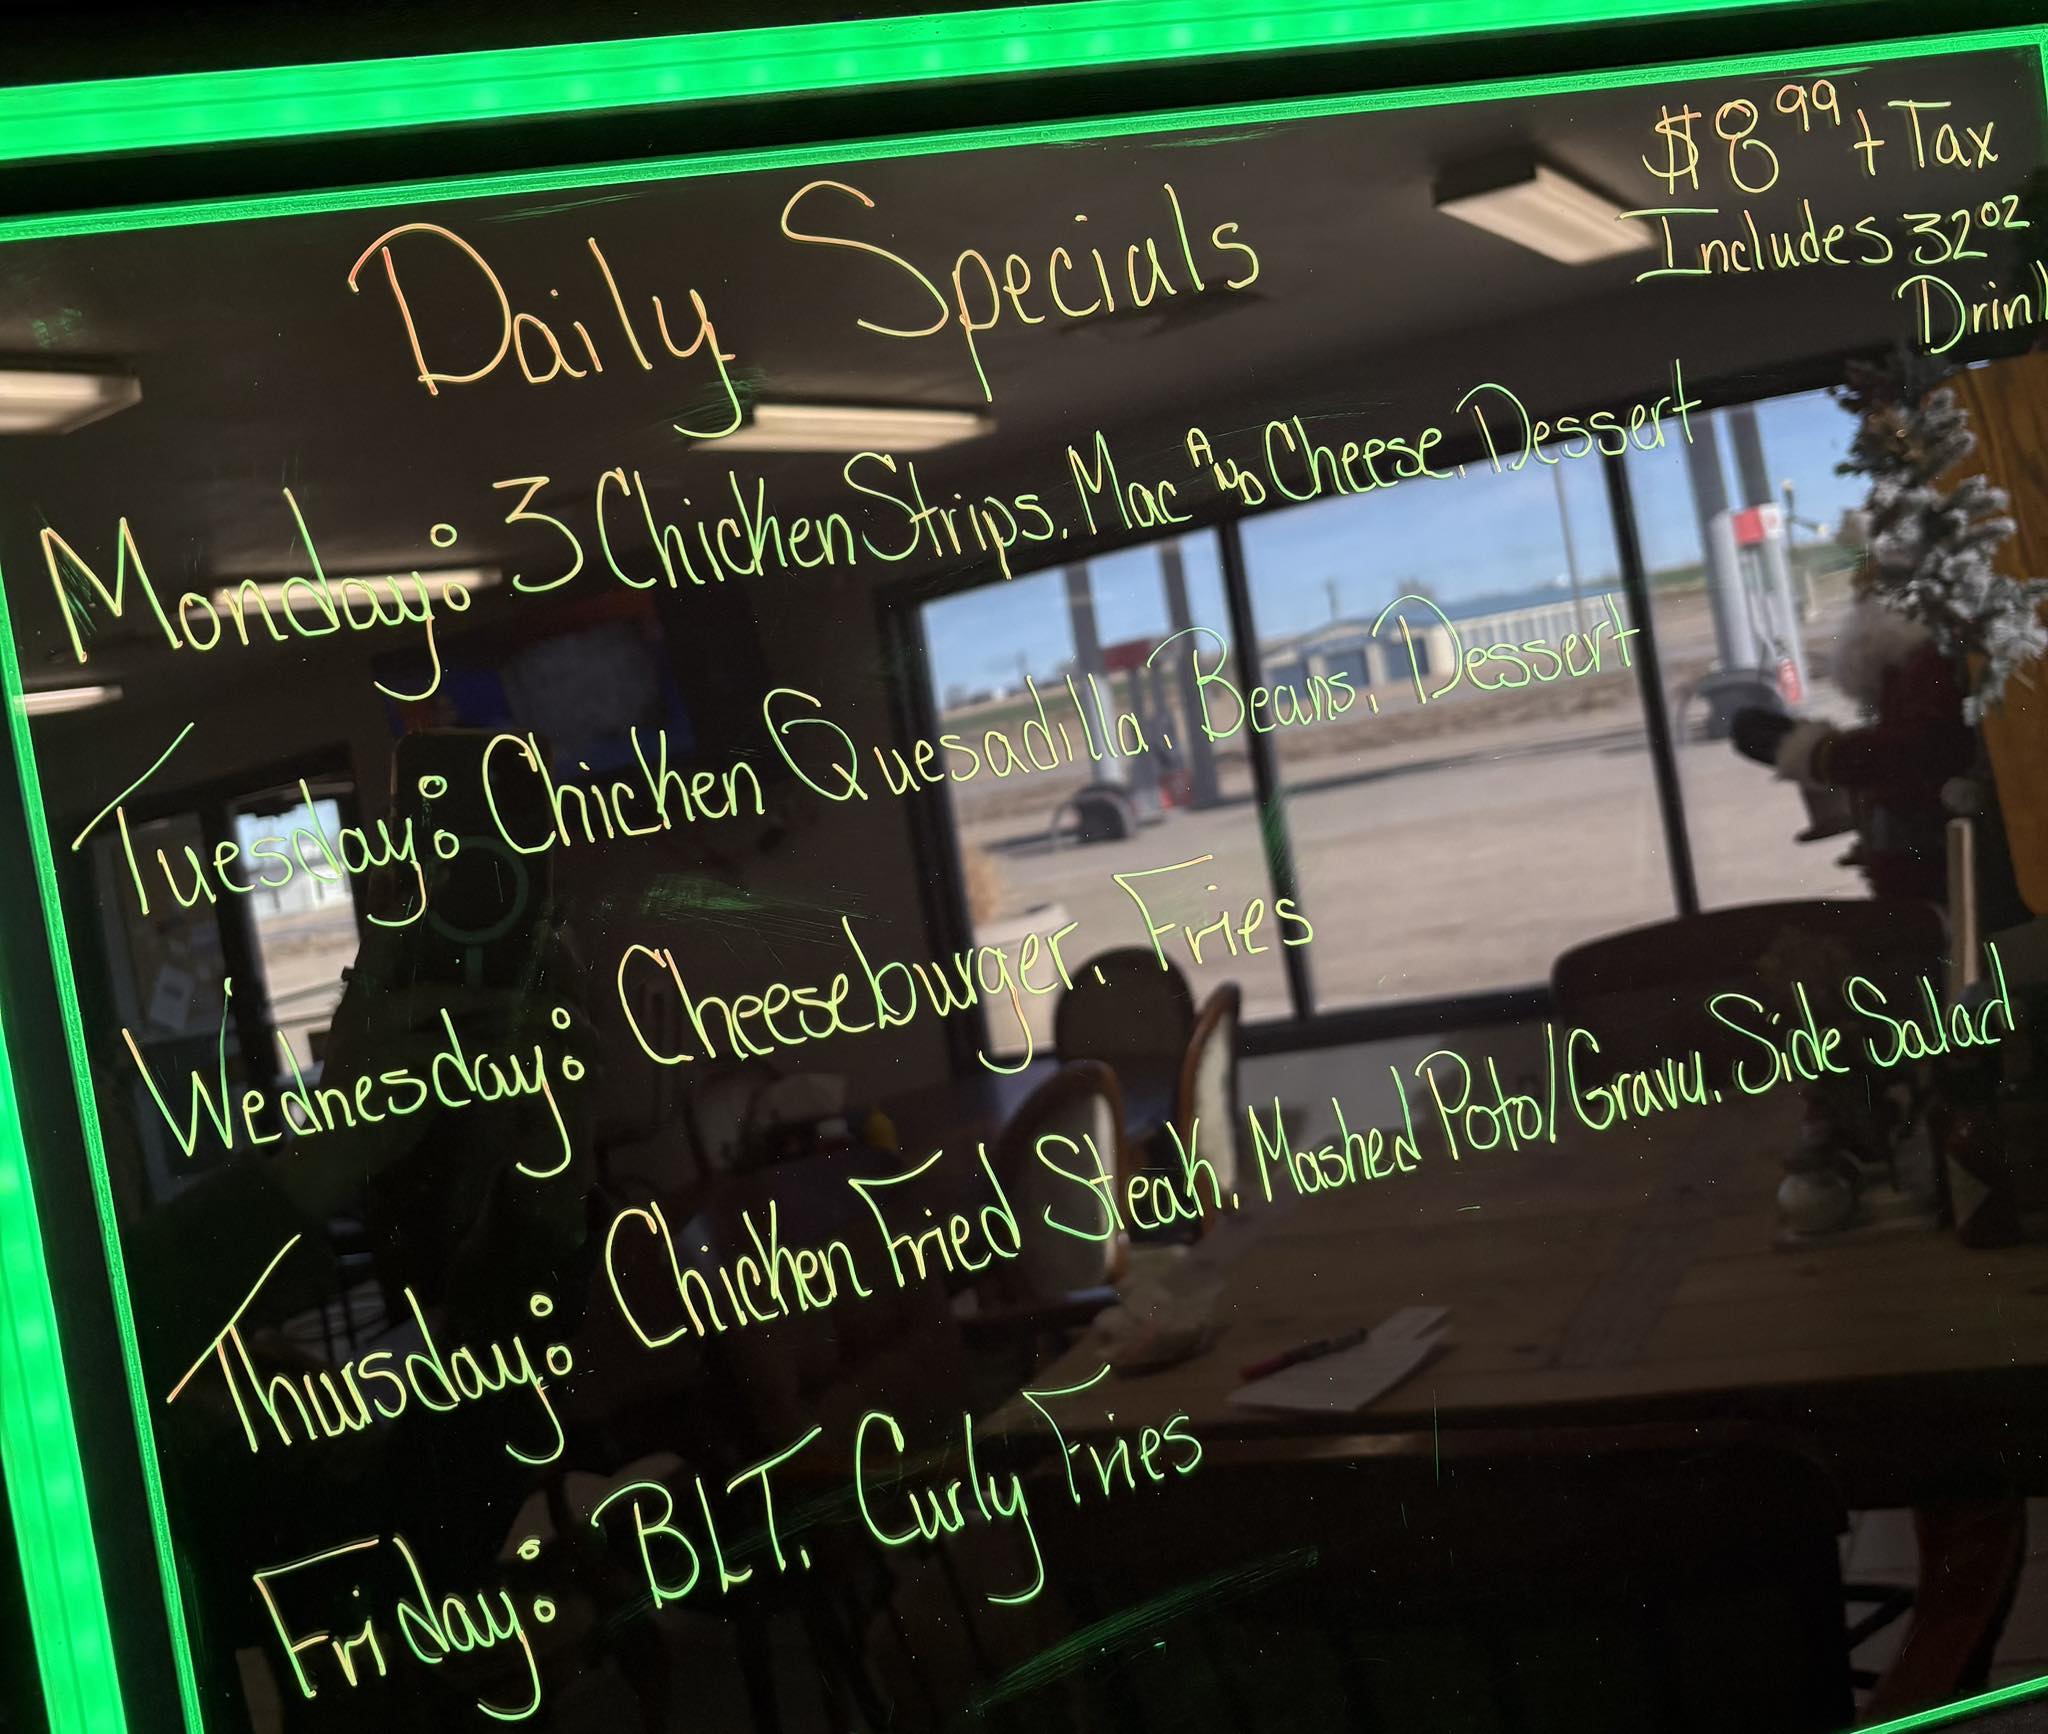 $8.99 + Tax
Includes 32oz
Drin
Daily Specials
Monday: 3 Chicken Strips, Mac AND Cheese, Dessert
Tuesday: Chicken Quesadilla, Beans, Dessert
Wednesday: Cheeseburger, Fries
Thursday: Chicken Fried Steak, Mashed Poto/Gravy, Side Salad
Friday: BLT, Curly Fries